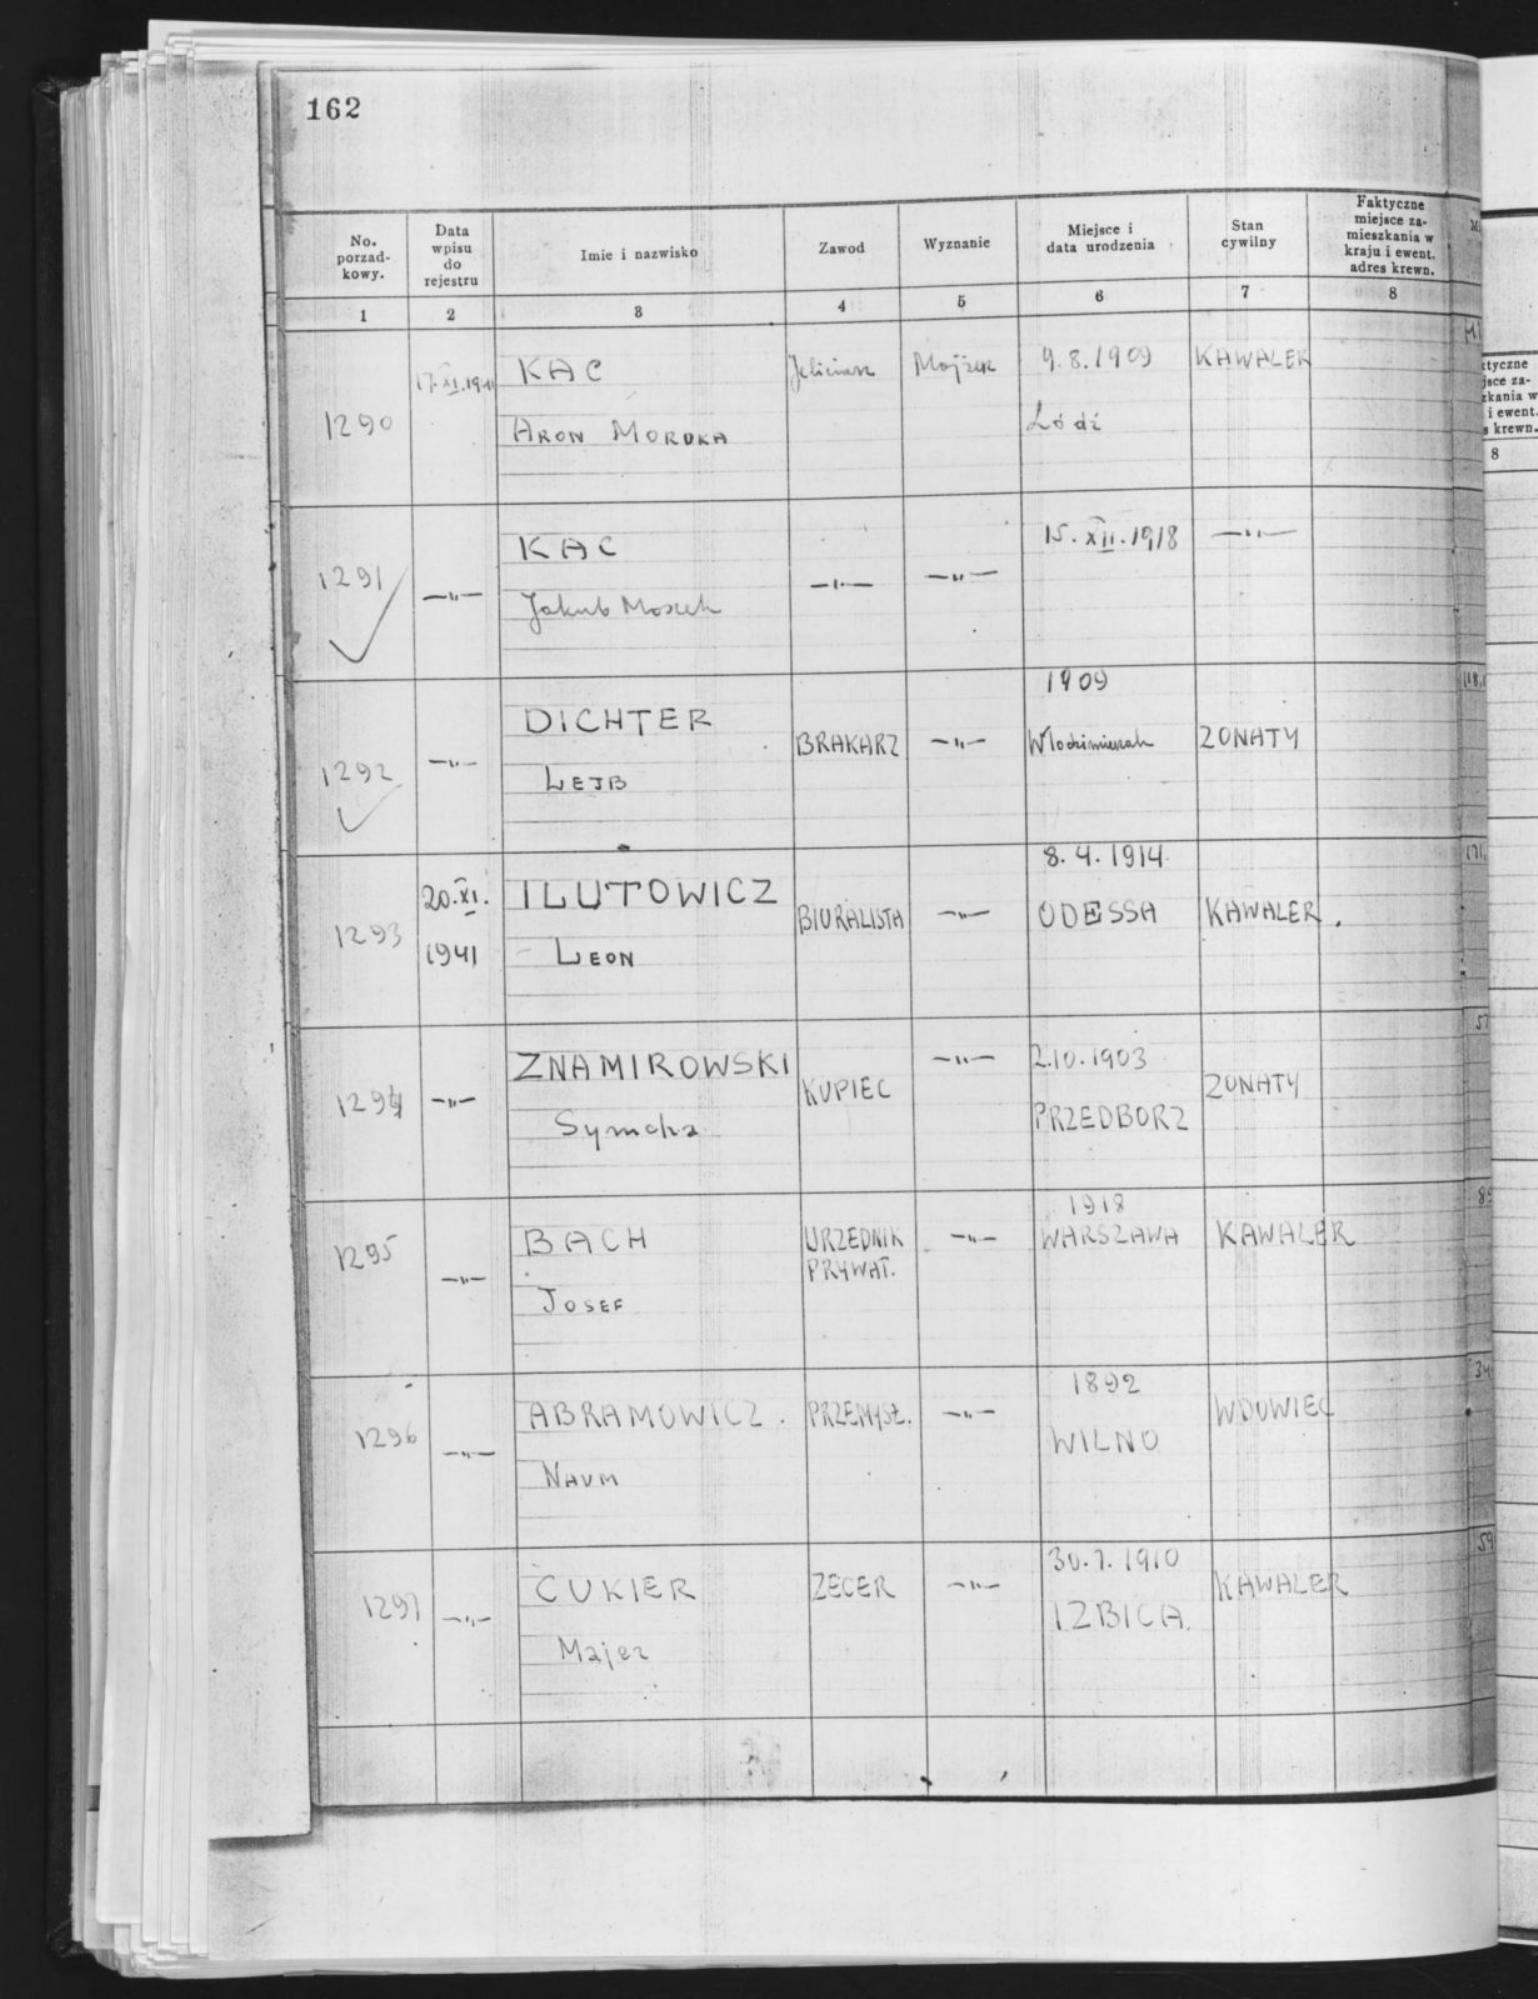 162
No. porzad- kowy.
Data wpisu do rejestru
Imie i nazwisko
Zawod
Wyznanie
Miejsce i data urodzenia
Stan cywilny
Faktyczne miejsce za- mieszkania w kraju i ewent. adres krewn.
1 2 3 4 5 6 7 8
1290 17.XI.1941 KAC Mojżesz 9.8.1909 KAWALER
ARON MORDKA Łódź
1291 —"— KAC —"— —"— 15.XII.1918 —"—
Jakub Moszek
1292 —"— DICHTER BRAKARZ —"— 1909 ZONATY
LEJB
1293 20.XI. ILUTOWICZ BIURALISTA —"— 8.4.1914 KAWALER.
1941 LEON ODESSA
1294 —"— ZNAMIROWSKI KUPIEC —"— 2.10.1903 ZONATY
Symcha PRZEDBORZ
1295 —"— BACH URZEDNIK —"— 1918 KAWALER
JOSEF PRYWAT. WARSZAWA
1296 —"— ABRAMOWICZ. PRZEMYSŁ. —"— 1892 WDOWIEC
NAUM WILNO
1297 —"— CUKIER ZECER —"— 30.7.1910 KAWALER
Majer IZBICA.
ktyczne
jsce za-
zkania w
i ewent.
s krewn.
8